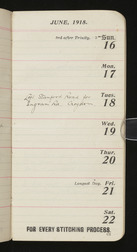 JUNE, 1918.
3rd after Trinity. Sun. 16
Mon. 17
Tues. 18
Road, Croydon
Wed. 19
Thur. 20
Longest Day. Fri. 21
Sat. 22
FOR EVERY STITCHING PROCESS.